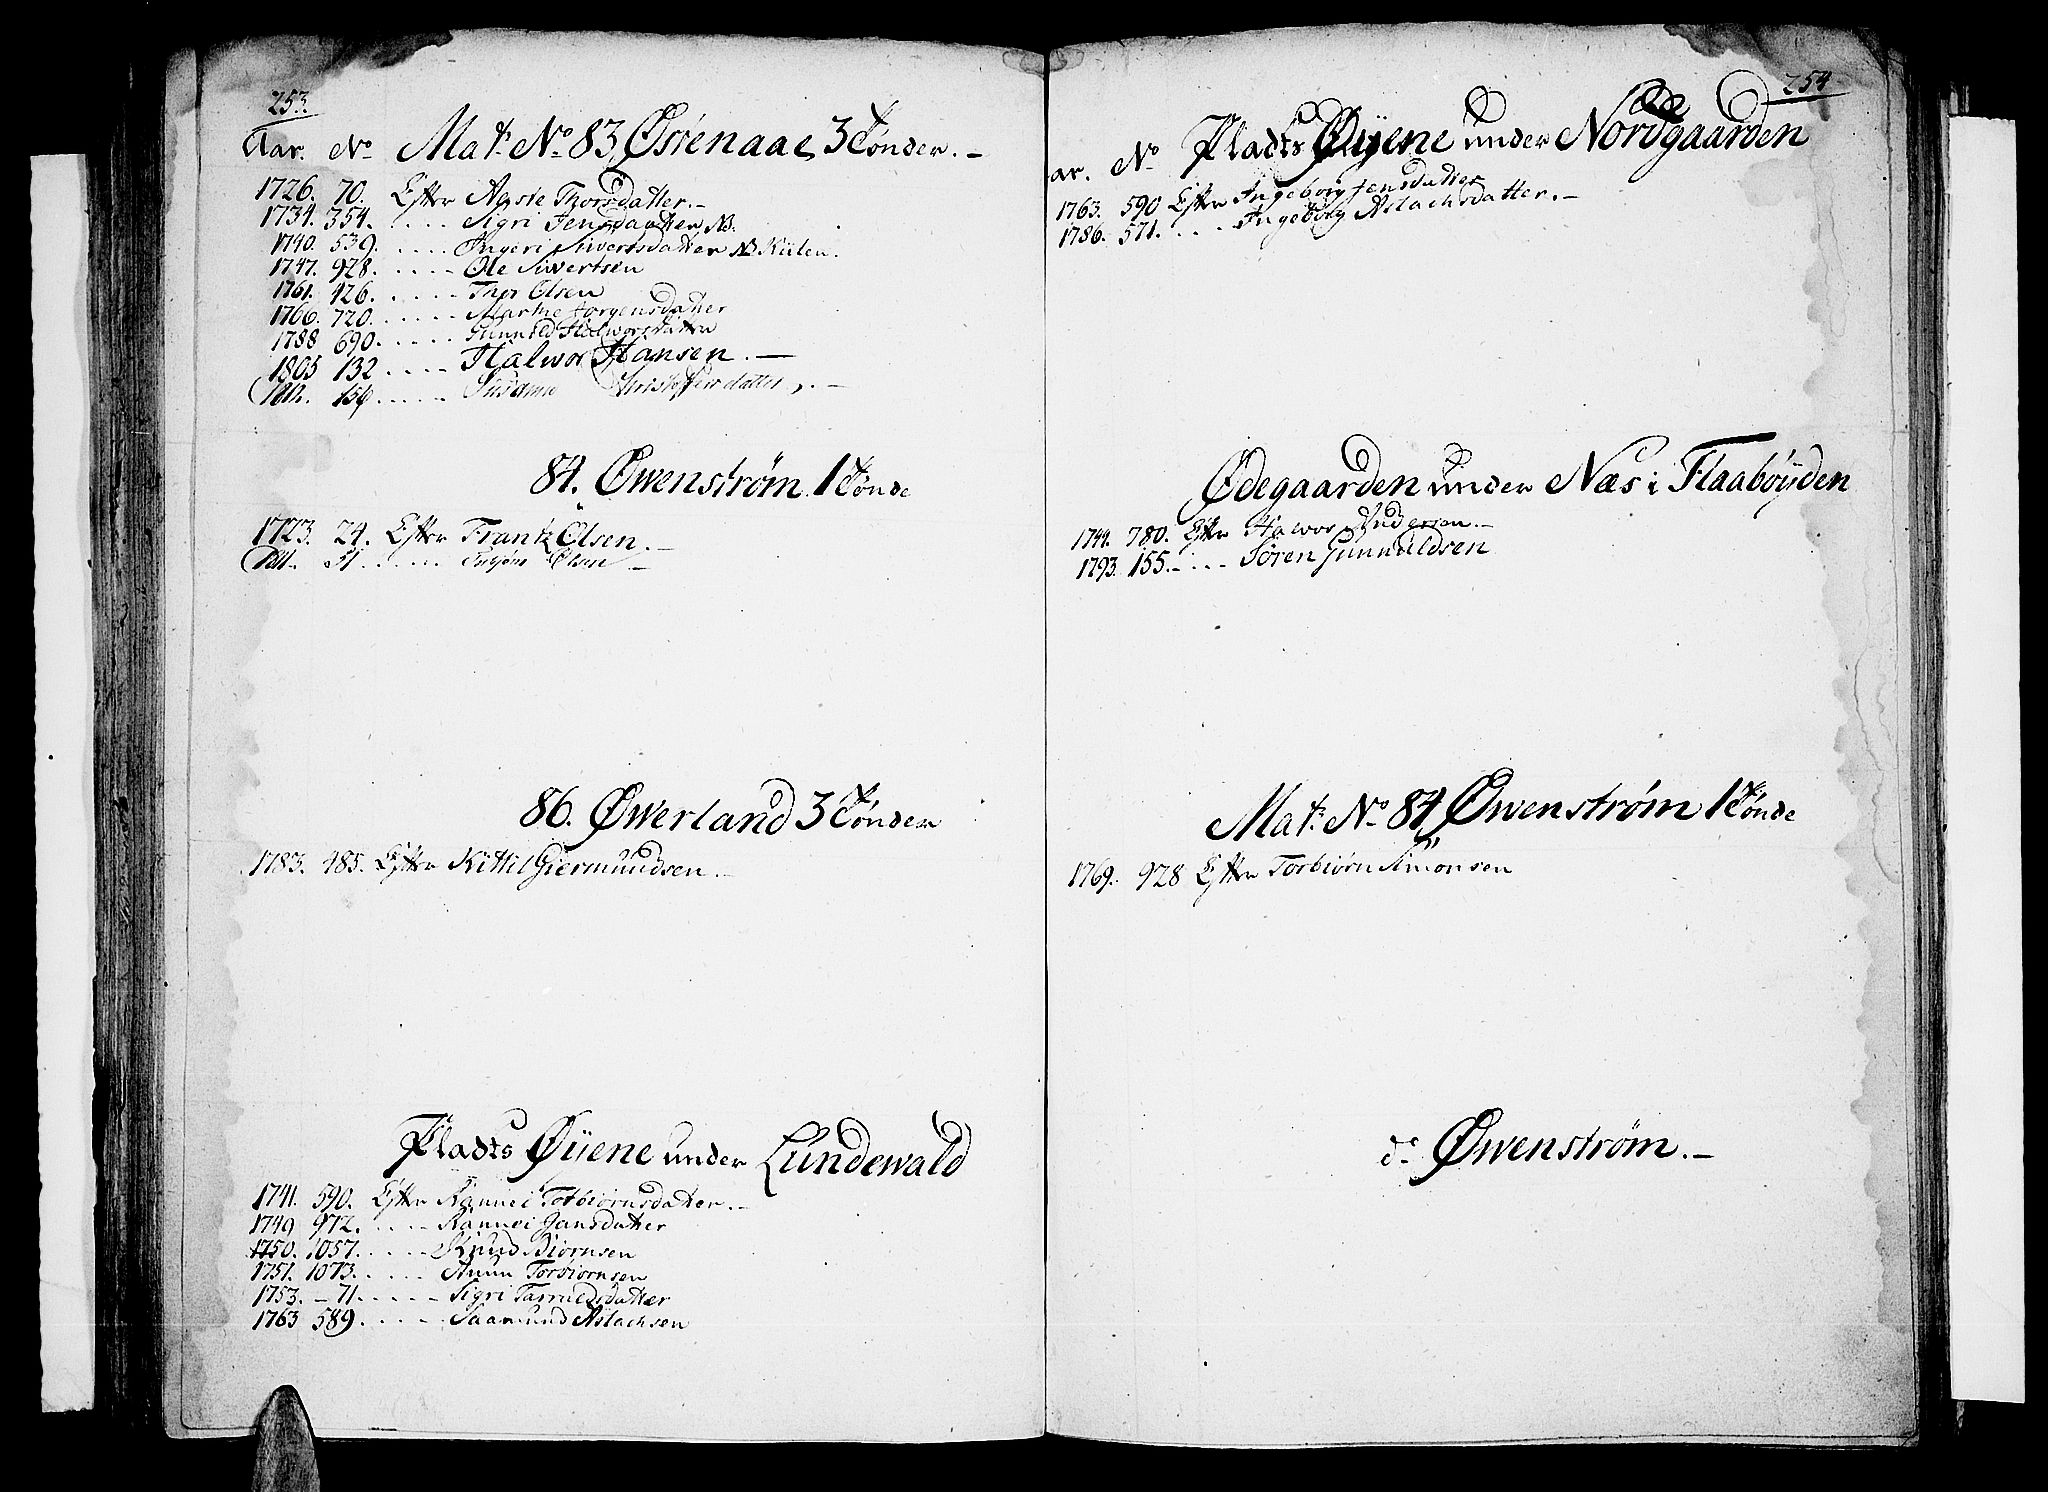 253.
Aar. No Mat: No 83, Østenaae 3 Tønder. –
1726. 70. Efter Aaste Thorsdatter. –
1734. 354. .... Sigri Jensdatter NB.
1740. 539. .... Ingeri Siwertsdatter NB Kiilen.
1747. 928. .... Ole Siwertsen
1761. 426. ..... Thor Olsen
1766. 720. ..... Marthe Jørgensdatter
1788 690. ..... Gunnild Halworsdatter
1805 132 .... Halwor Hansen. –
1812. 159. ..... Susanne Christophersdatter. –
84. Øwenstrøm 1 Tønde
1723. 24. Efter Frantz Olsen. –
51 ..... Olsen –
86. Øwerland 3 Tønder
1783. 485. Efter Kittil Giermundsen. –
Pladts Øyene under Lundewald
1741. 590. Efter Rannei Torbiørnsdatter. –
1749 972. .... Rannei Jansdatter
1750. 1057. ..... Knud Biørnsen
1751. 1073. ..... Anun Torbiørnsen
1753. – 71. ..... Sigri Tarraldsdatter
1763 589. ..... Saamund Aslachsen
254
Aar. No Pladts Øyene under Nordgaarden
1763. 590 Efter Ingeborg Jensdatter
1786. 571. .... Ingeborg Aslachsdatter. –
Ødegaarden under Næs i Flaabøyden
1744. 780. Efter Halwor Andersen. –
1793. 155. .... Søren Gunnuldsen
Mat: No 84, Øwenstrøm 1 Tønde
1769. 928 Efter Torbiørn Simonsen
do Øwenstrøm. –